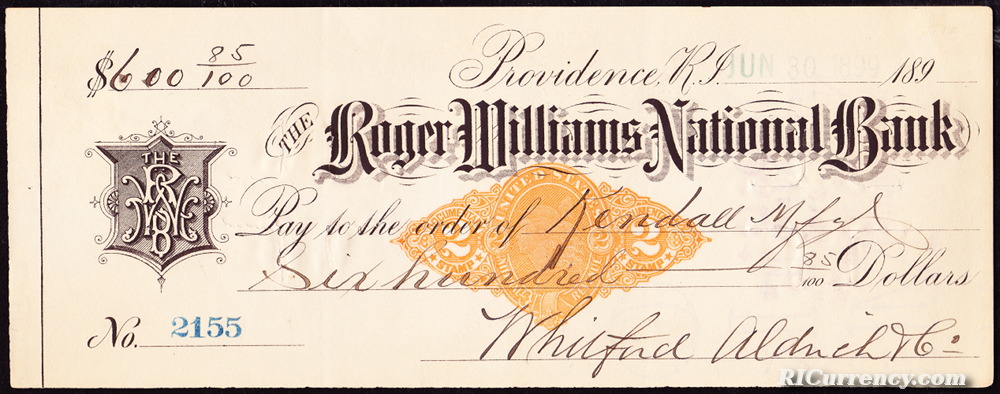 $600 85/100
Providence, R.I. JUN 30 1899 189
THE Roger Williams National Bank
THE RWNB
Pay to the order of Kendall Mfg
UNITED STATES
2 2
STAMP STAMP
Six hundred 85/100 Dollars
No. 2155
Whitford Aldrich & Co
RICurrency.com